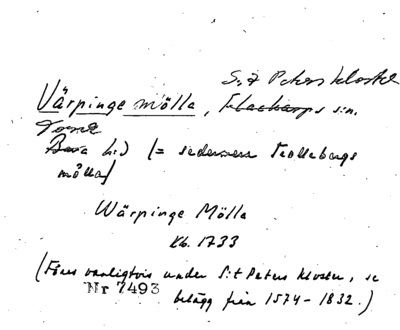 S:t Peters kloster
Värpinge mölla, Flackarps sn.
Torna
Bara hd (= sedermera Trollebergs
mölla)
Wärpinge Mölla
Kb. 1733
(Föres vanligtvis under S:t Peters kloster, se
Nr 7493
belägg från 1574-1832.)